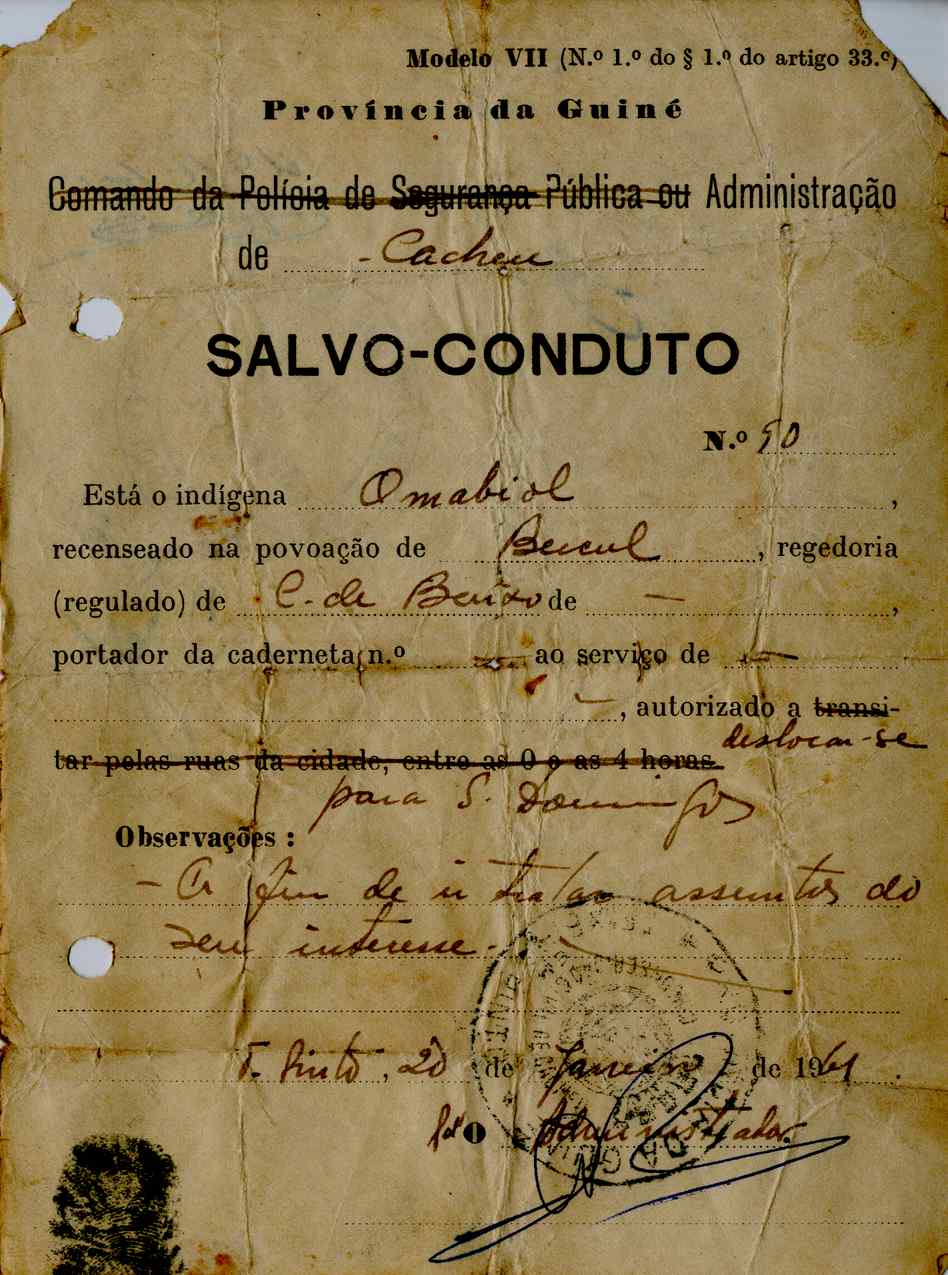 Modelo VII (N.º 1.º do § 1.º do artigo 33.º)
Província da Guiné
Comando da Polícia de Segurança Pública ou Administração
de - Cacheu
SALVO-CONDUTO
N.º 50
Está o indígena Omabiol,
recenseado na povoação de , regedoria
(regulado) de C. de Baixo de —,
portador da caderneta n.º — ao serviço de —
—, autorizado a transi-
deslocar-se
tar pelas ruas da cidade, entre as 0 e as 4 horas.
para S. Domingos
Observações :
- A fim de ir tratar assuntos do
seu interesse.-
T. Pinto, 20 de Janeiro de 1961.
O Administrador